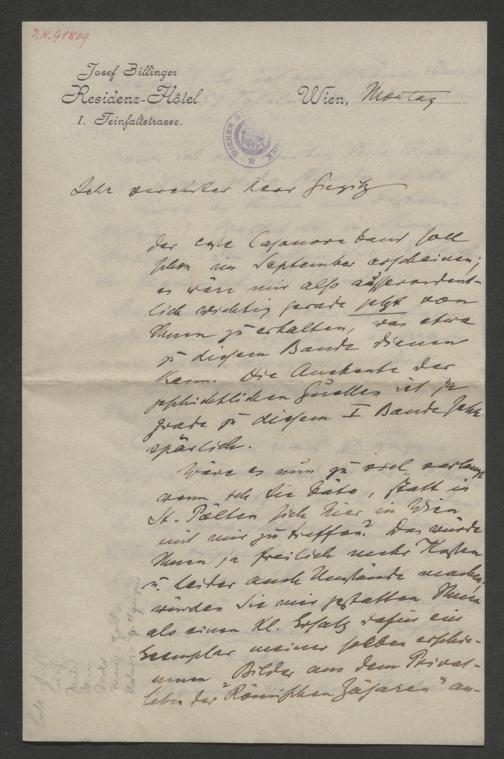 J.N. 91809
Josef Billinger
Residenz-Hôtel
I. Teinfaltstrasse.
Wien, Montag
Sehr verehrter Herr Gugitz
der erste Casanova band soll
schon im September erscheinen;
es wäre mir also ausserordent-
lich wichtig gerade jetzt von
Ihnen zu erhalten, was etwa
zu diesem Bande dienen
kann. Die Ausbeute der
geschichtlichen Quellen ist ja
grade zu diesem I Bande sehr
spärlich.
Wäre es nun zu viel verlangt
wenn ich Sie bäte, statt in
St. Pölten sich hier in Wien
mit mir zu treffen? Das würde
Ihnen ja freilich mehr Kosten
u. leider auch Umstände machen,
würden Sie mir gestatten Ihnen
als einen kl. Ersatz dafür ein
Exemplar meiner soeben erschie-
nenen "Bilder aus dem Privat-
leben der Römischen Cäsaren" an-